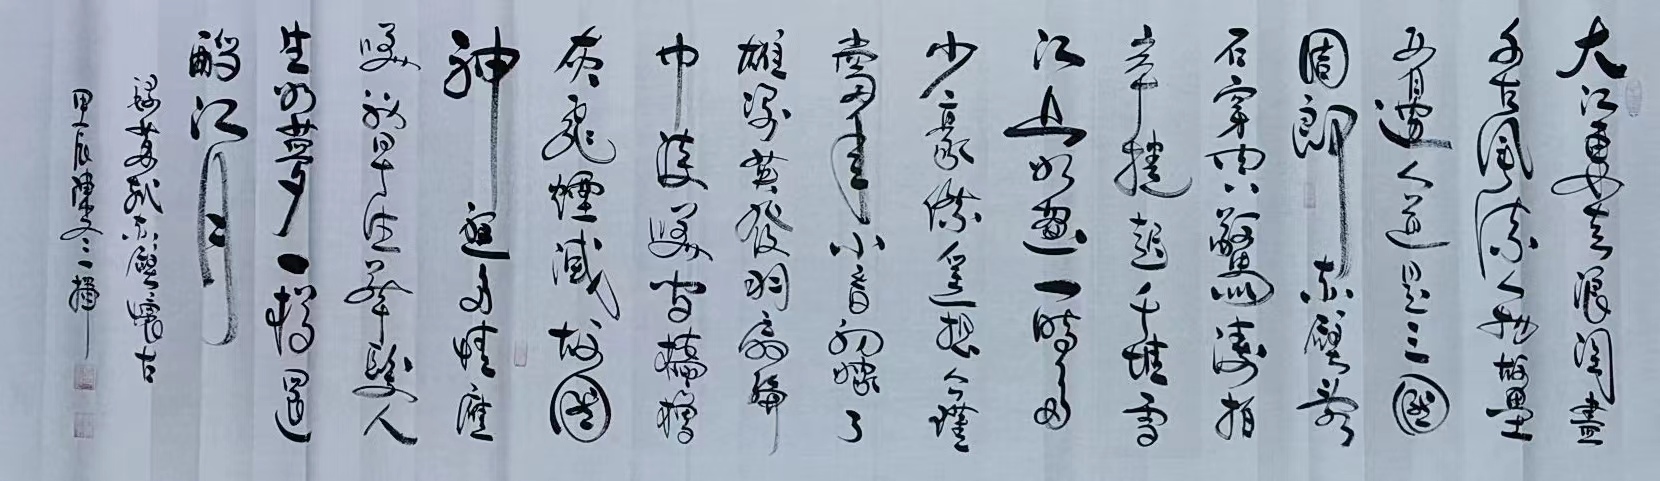 大江東去浪淘盡
千古風流人物故壘
西邊人道是三國
周郎赤壁亂
石穿空驚濤拍
岸捲起千堆雪
江山如畫一時多
少豪傑遙想公瑾
當年小喬初嫁了
雄姿英發羽扇綸
巾談笑間檣櫓
灰飛煙滅故國
神遊多情應
笑我早生華髮人
生如夢一樽還
酹江月
錄蘇軾赤壁懷古
甲辰陳文